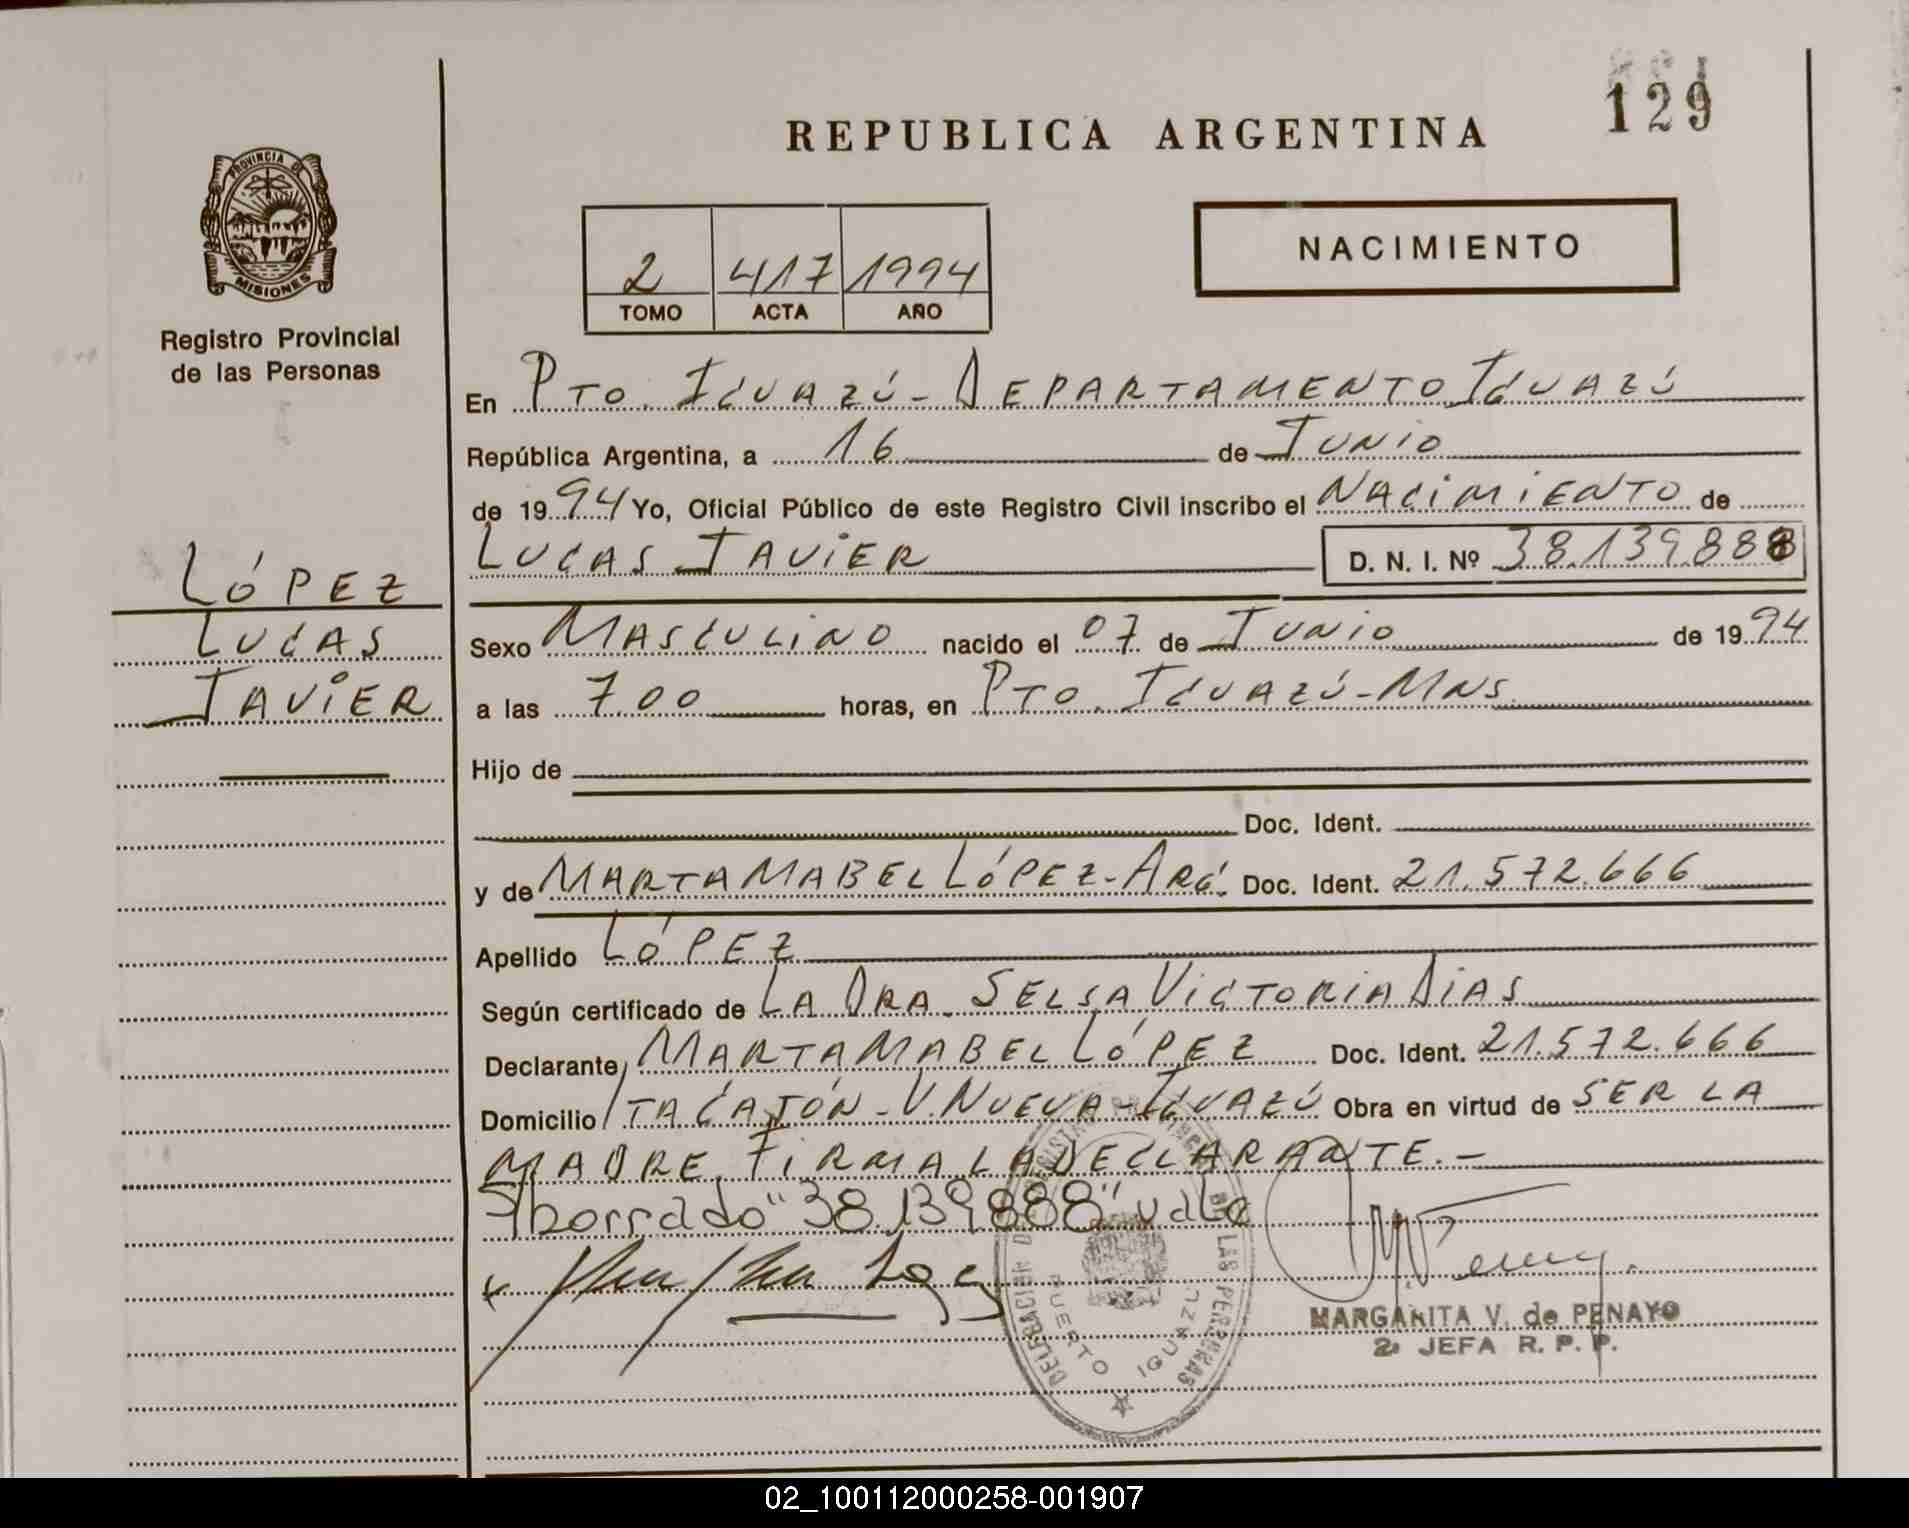 129
REPUBLICA ARGENTINA
PROVINCIA DE
MISIONES
Registro Provincial
de las Personas
2 417 1994
TOMO ACTA AÑO
NACIMIENTO
En Pto. Iguazú - Departamento Iguazú
República Argentina, a 16 de Junio
de 1994 Yo, Oficial Público de este Registro Civil inscribo el Nacimiento de
Lucas Javier D. N. I. Nº 38.139.888
López
Lucas
Javier
Sexo Masculino nacido el 07 de Junio de 1994
a las 7.00 horas, en Pto. Iguazú - Mns.
Hijo de
Doc. Ident.
y de Marta Mabel López - Arg. Doc. Ident. 21.572.666
Apellido López
Según certificado de La Dra. Selsa Victoria Dias
Declarante, Marta Mabel López Doc. Ident. 21.572.666
Domicilio Ita Cajón - V. Nueva - Iguazú Obra en virtud de ser la
madre. Firma la declarante. -
borrado "38.139888" vale
PUERTO IGUAZU
MARGARITA V. de PENAYO
2ª JEFA R. P. P.
02_100112000258-001907